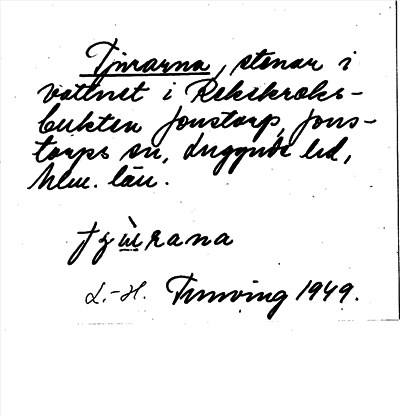 Tjurarna, stenar i
vattnet i Rekekroks-
bukten Jonstorp, Jons-
torps sn, Luggude hd,
Mlm. län.
tjùrana
L.-H. Tunving 1949.